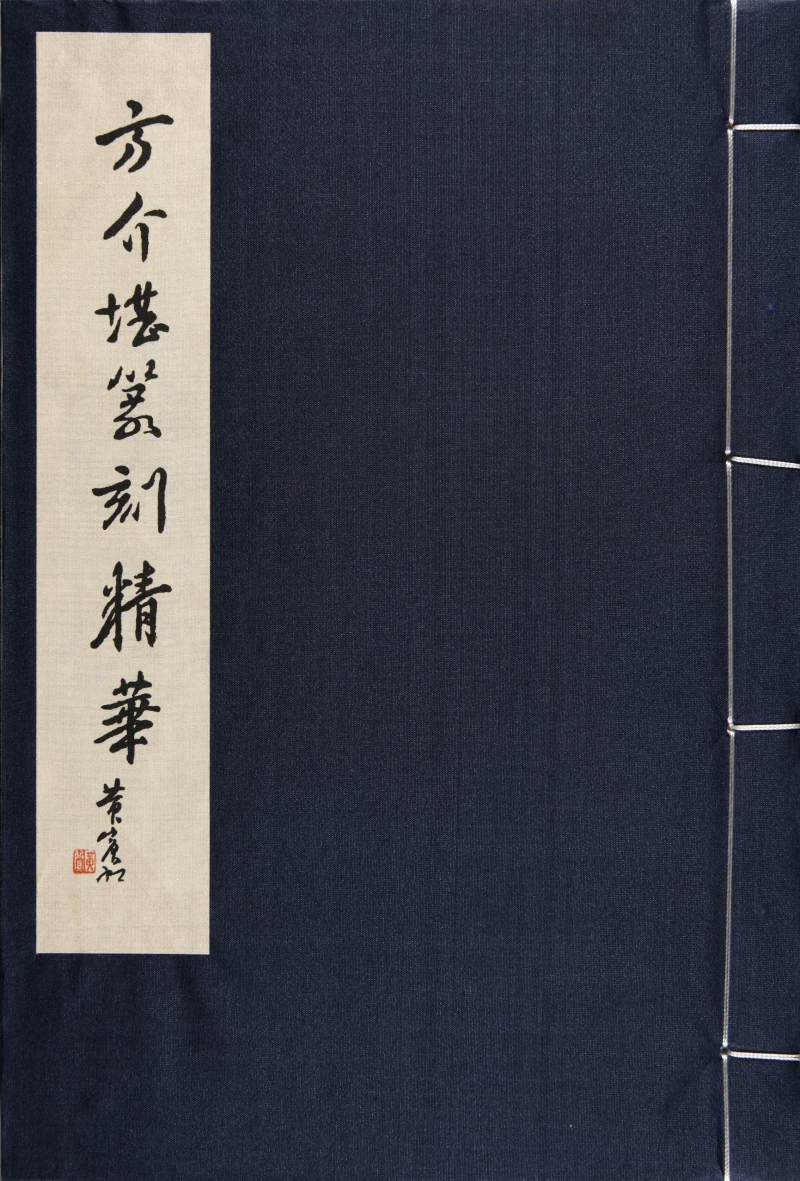 方介堪篆刻精華
黄賓虹